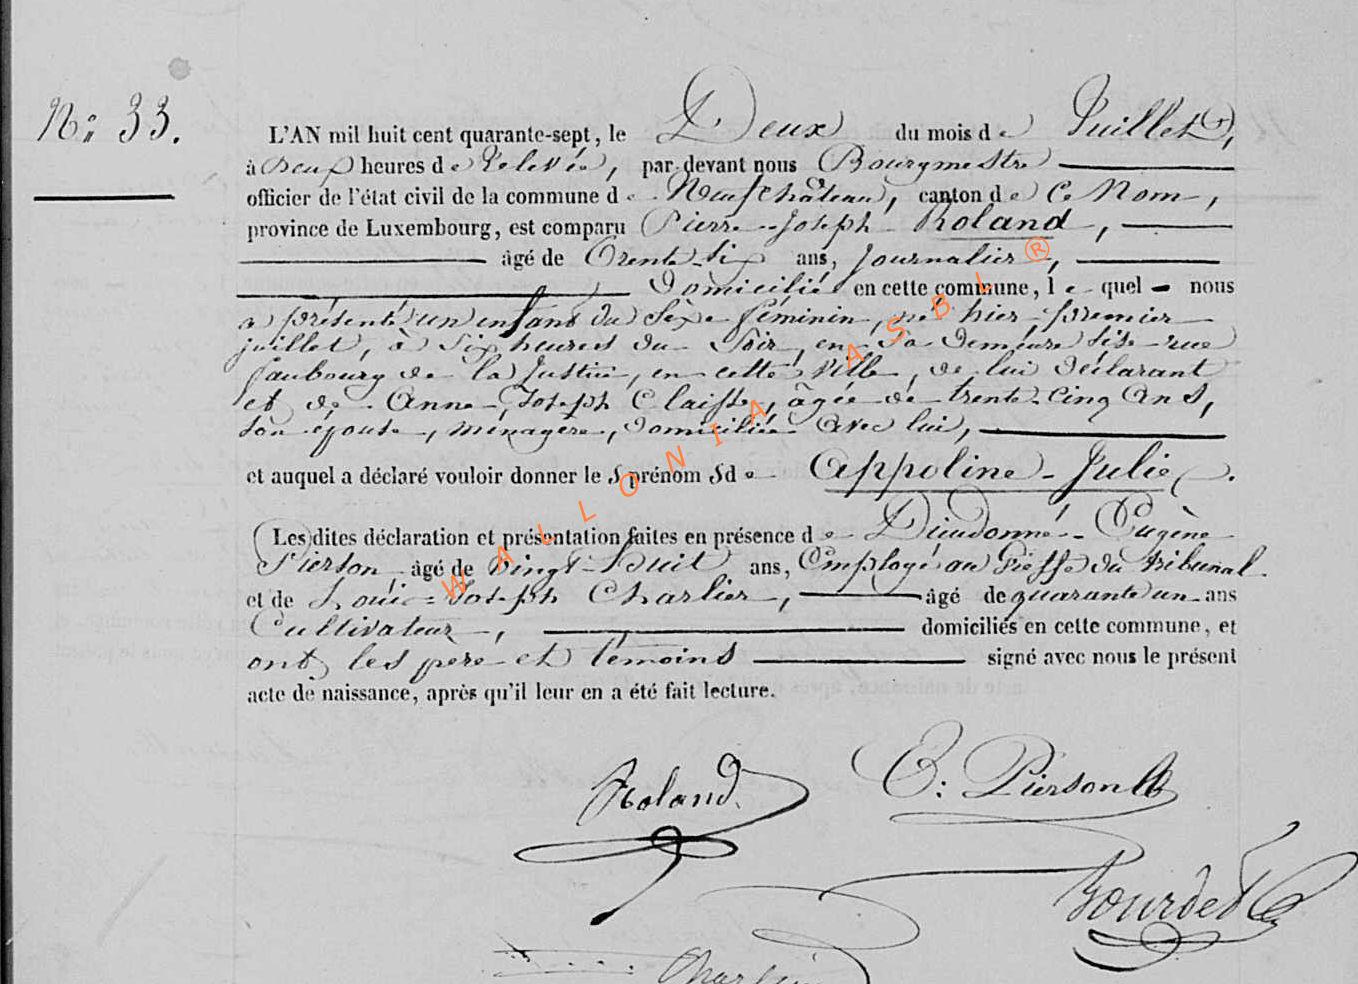 N° 33.
L'AN mil huit cent quarante-sept, le Deux du mois de Juillet,
à Deux heures de Relevée, par devant nous Bourgmestre
officier de l'état civil de la commune de Neufchâteau, canton de Ce Nom,
province de Luxembourg, est comparu Pierre-Joseph Roland,
âgé de Trente-Six ans, Journalier,
Domicilié en cette commune, lequel nous
a présenté un enfant du Sexe féminin, né hier premier
juillet, à Six heures du Soir, en Sa Demeure sise rue
faubourg de la Justice, en cette Ville, de lui Déclarant
et de Anne-Joseph Claisse, âgée de trente-cinq ans,
son épouse, ménagère, domiciliée avec lui,
et auquel a déclaré vouloir donner les prénoms de Appoline-Julie.
Lesdites déclaration et présentation faites en présence de Dieudonné-Eugène
Pierson âgé de vingt-huit ans, Employé au Greffe du tribunal
et de Louis-Joseph Charlier, âgé de quarante un ans
Cultivateur, domiciliés en cette commune, et
ont les père et témoins signé avec nous le présent
acte de naissance, après qu'il leur en a été fait lecture.
Roland E: Pierson
Bourdet
Charlier
WALLONIA ASBL ®